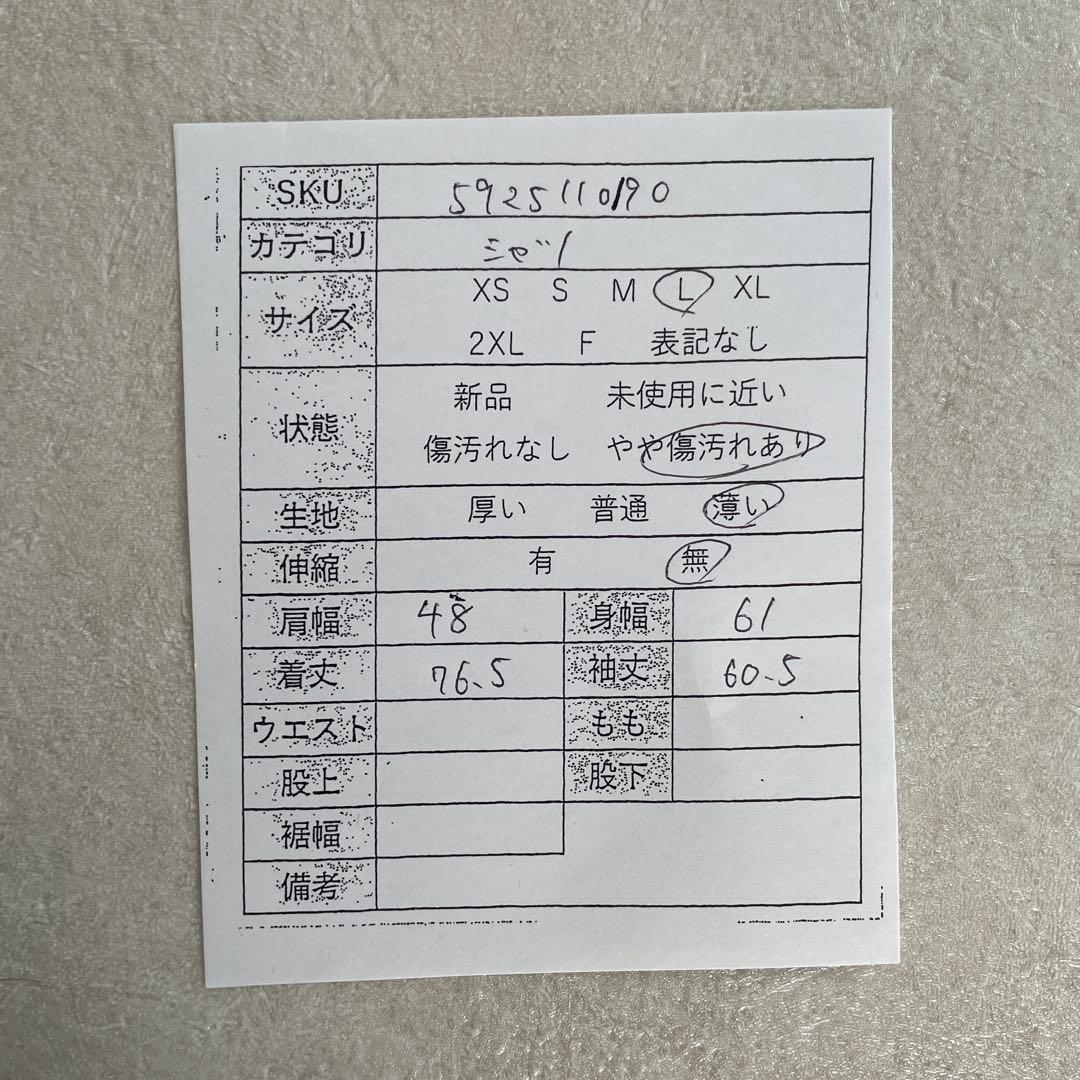 SKU 5925110190
カテゴリ シャツ
サイズ XS S M L XL
2XL F 表記なし
状態 新品 未使用に近い
傷汚れなし やや傷汚れあり
生地 厚い 普通 薄い
伸縮 有 無
肩幅 48 身幅 61
着丈 76.5 袖丈 60.5
ウエスト もも
股上 股下
裾幅
備考